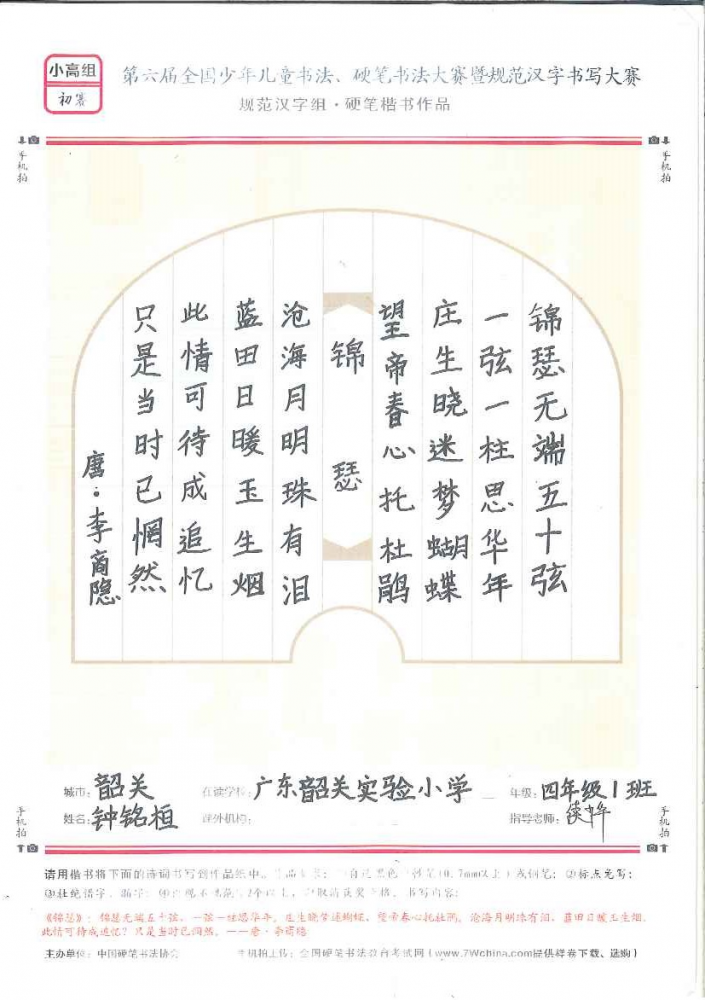 小高组
初赛
第六届全国少年儿童书法、硬笔书法大赛暨规范汉字书写大赛
规范汉字组·硬笔楷书作品
手机拍
手机拍
锦瑟无端五十弦
一弦一柱思华年
庄生晓迷梦蝴蝶
望帝春心托杜鹃
锦瑟
沧海月明珠有泪
蓝田日暖玉生烟
此情可待成追忆
只是当时已惘然
唐·李商隐
城市：韶关
在读学校：广东韶关实验小学
年级：四年级1班
姓名：钟铭桓
课外机构：
指导老师：
手机拍
手机拍
请用楷书将下面的诗词书写到作品纸中。
自选黑色 (0.7mm以上)或钢笔；②标点免写；
③杜绝错字、
书写内容：
《锦瑟》：锦瑟无端五十弦，一弦一柱思华年。庄生晓梦迷蝴蝶，望帝春心托杜鹃。沧海月明珠有泪，蓝田日暖玉生烟。
此情可待成追忆？只是当时已惘然。——唐·李商隐
主办单位：中国硬笔书法协会
手机拍上传：全国硬笔书法教育考试网（www.7Wchina.com提供样卷下载、选购）